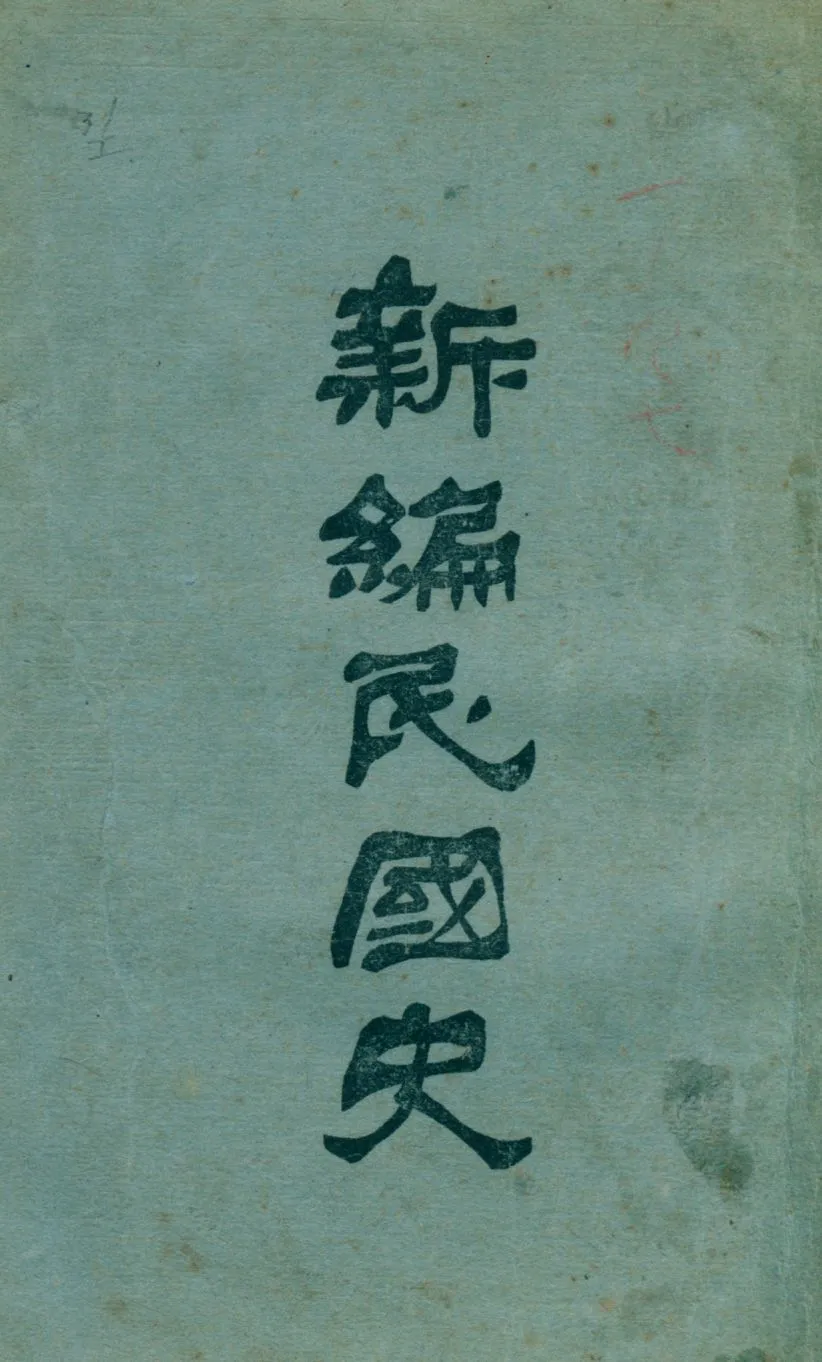 新編民國史